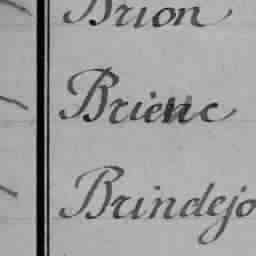 Brion
Brienc
Brindejo